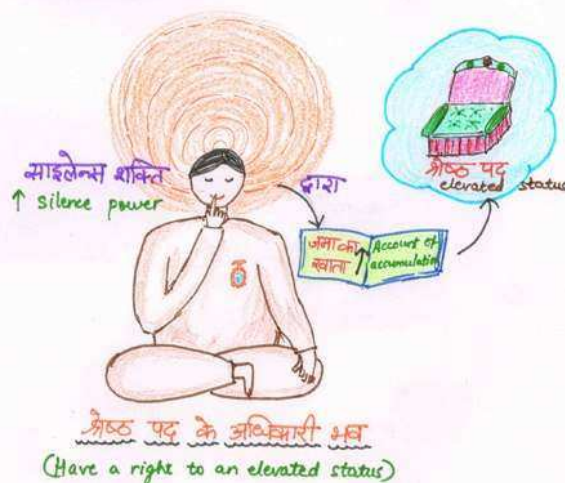 साइलेन्स शक्ति
↑ silence power
द्वारा
जमा का
खाता
↑
Account of
accumulation
श्रेष्ठ पद
elevated status
श्रेष्ठ पद के अधिकारी भव
(Have a right to an elevated status)